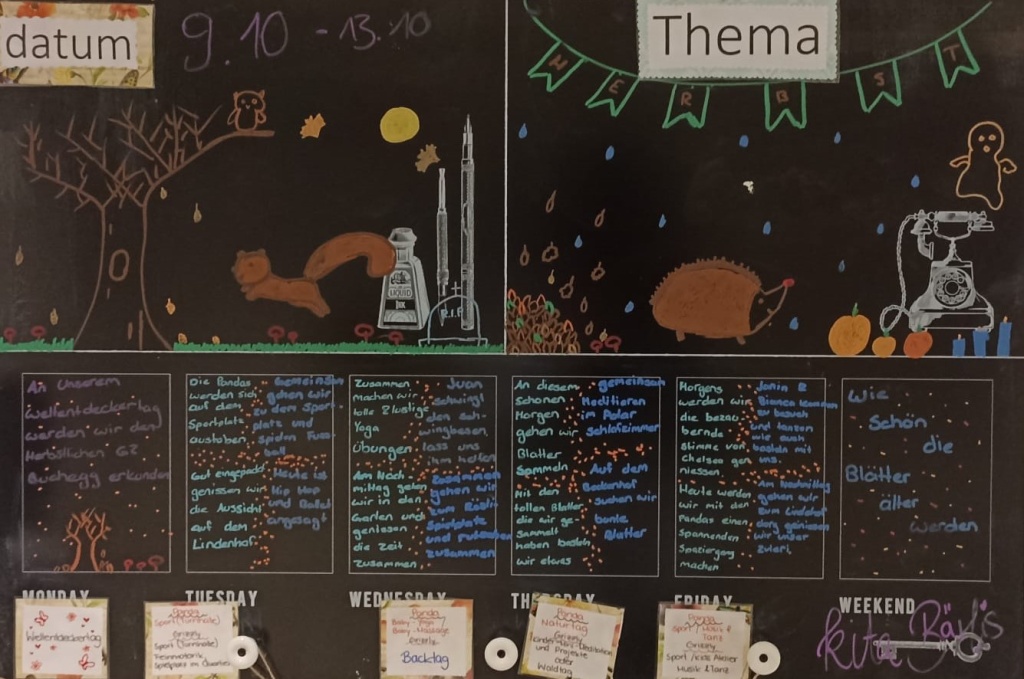 datum
9.10 - 13.10
Thema
HERBST
LIQUID
INK
R.I.P
An unserem
Wellentdeckertag
werden wir den
Herbstlichen GZ
Buchegg erkunden
Die Pandas
werden sich
auf dem
Sportplatz
austoben
Gut eingepackt
genissen wir
die Aussicht
auf dem
Lindenhof.
Gemeinsam
gehen wir
zu dem Sport-
platz und
spielen Fuss-
ball
Heute ist
Hip Hop
und Ballet
angesagt
Zusammen
machen wir
tolle & lustige
Yoga
Übungen
Am Nach-
mittag gehen
wir in den
Garten und
genissen
die Zeit
Zusammen
Juan
schwingt
den sch-
wingbesen,
lass uns
ihm helfen
Zusammen
gehen wir
zum
Spielplatz
und rutschen
zusammen
An diesem
schönen
Morgen
gehen wir
Blätter
Sammeln
Mit den
tollen Blätter
die wir ge-
sammelt
haben basteln
wir etwas
gemeinsam
Meditieren
im Polar
Schlafzimmer
Auf dem
Beckenhof
suchen wir
bunte
Blätter
Morgens
werden wir
die bezau-
bernde
Stimme von
Chelsea gen-
niessen
Heute werden
wir mit den
Pandas einen
Spannenden
Spatziergang
machen
Janin &
Bianca kommen
zu besuch
und tanzen
wie auch
basteln mit
uns.
Am Nachmittag
gehen wir
zum Lindehof
dort geniessen
wir unser
Zvieri.
Wie
Schön
die
Blätter
älter
werden
MONDAY
TUESDAY
WEDNESDAY
THURSDAY
FRIDAY
WEEKEND
Wellentdeckertag
Panda
Sport (Turnhalle)
Grizzly
Sport (Turnhalle)
Feinmotorik
Spielplatz im Quartier
Panda
Baby-Yoga
Baby-Massage
Grizzly
Backtag
Panda
Naturtag
Grizzly
Kinder-Yoga, Meditation
und Projekte
oder
Waldtag
Panda
Sport / Musik &
Tanz
Grizzly
Sport / Kids Atelier
Musik & Tanz
kita Rägis